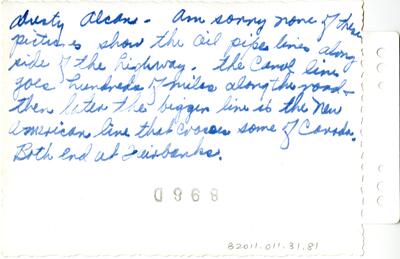 dusty Alcan. Am sorry none of these
pictures show the oil pipe lines along
side of the highway. the Canol line
goes hundreds of miles along the road -
then later the bigger line is the new
American line that crosses some of Canada.
Both end at Fairbanks.
8960
82011-011-31.81